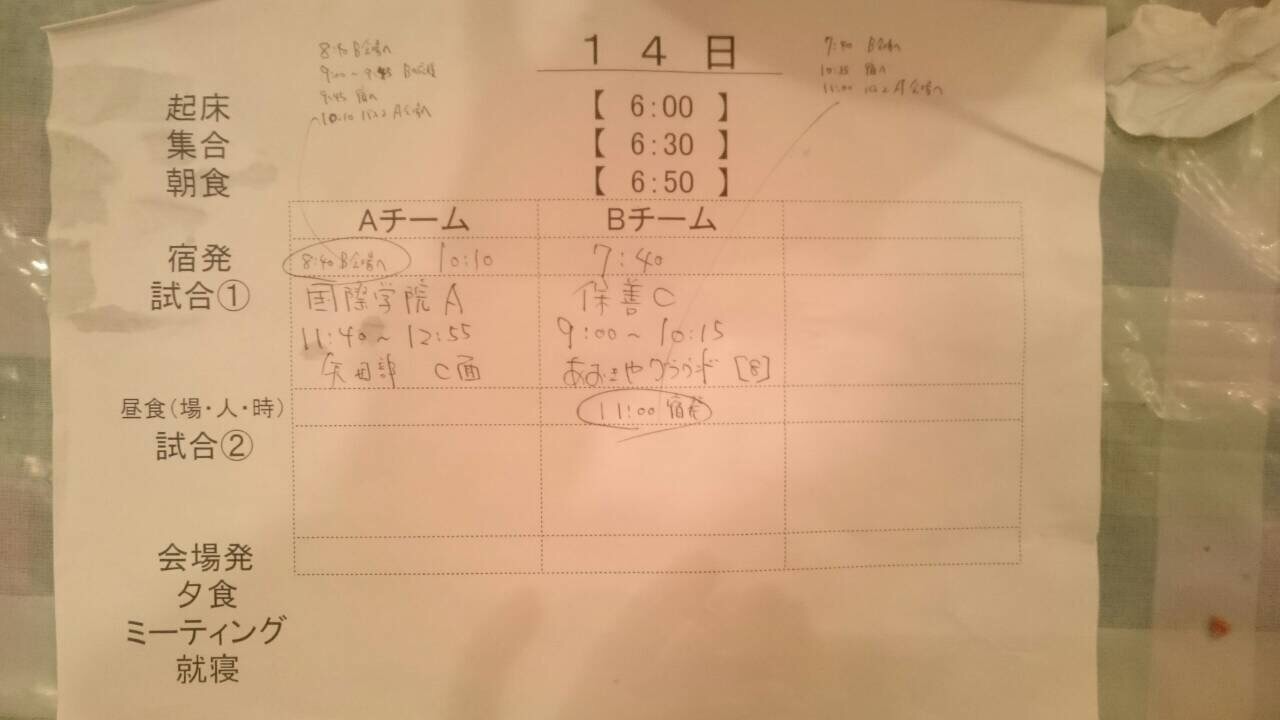 1 4 日
8:40 B会場へ
9:00～9:45 B応援
9:45 宿へ
10:10 バスで A会場へ
7:40 B会場へ
10:25 宿へ
11:00 バスで A会場へ
起床 【 6:00 】
集合 【 6:30 】
朝食 【 6:50 】
Aチーム Bチーム
宿発 8:40 B会場へ 10:10 7:40
試合① 国際学院 A 保善 C
11:40～12:55 9:00～10:15
矢田部 C面 あおきやグラウンド [8]
昼食(場・人・時) 11:00 宿発
試合②
会場発
夕食
ミーティング
就寝